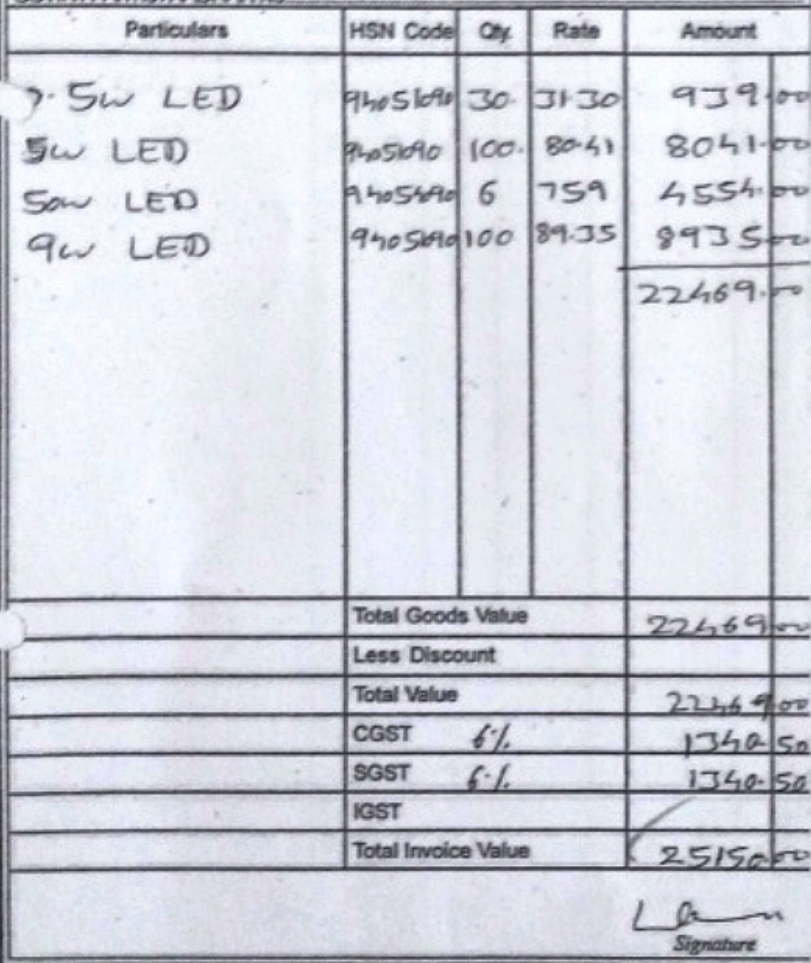 Particulars HSN Code Qty. Rate Amount
5w LED 94051090 30 31.30 939.00
5w LED 94051090 100 80.41 8041.00
50w LED 94054090 6 759 4554.00
9w LED 94051090 100 89.35 8935.00
22469.00
Total Goods Value 22469.00
Less Discount
Total Value 22469.00
CGST 6% 1340.50
SGST 6% 1340.50
IGST
Total Invoice Value 25150.00
Signature